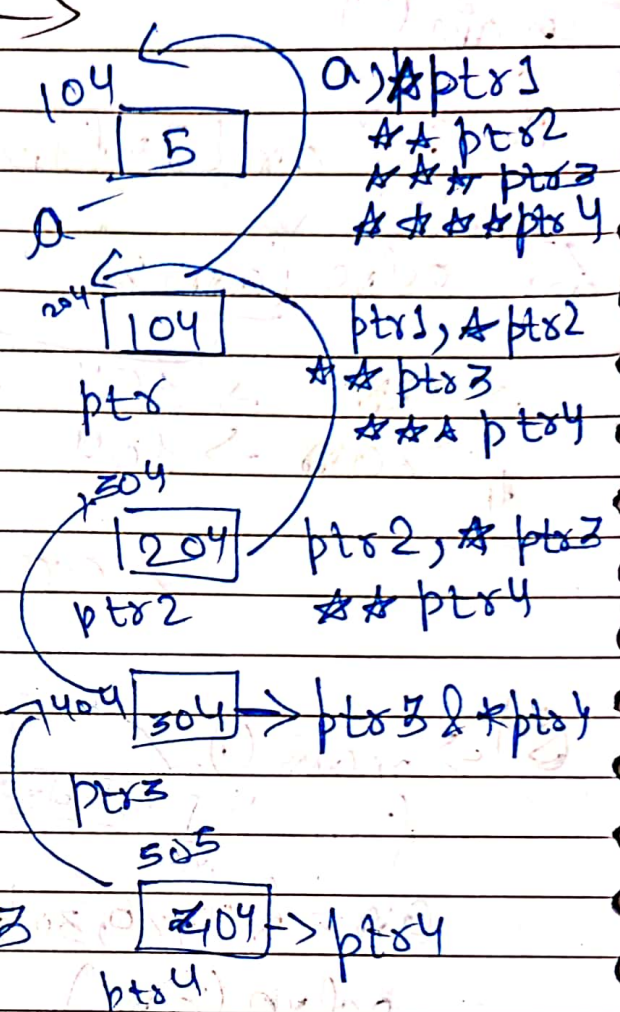 104
a, *ptr1
5
** ptr2
*** ptr3
a
**** ptr4
204
104
ptr1, *ptr2
** ptr3
ptr
*** ptr4
304
204
ptr2, * ptr3
ptr2
** ptr4
404
304 -> ptr3 & *ptr4
ptr3
505
3
404 -> ptr4
ptr4